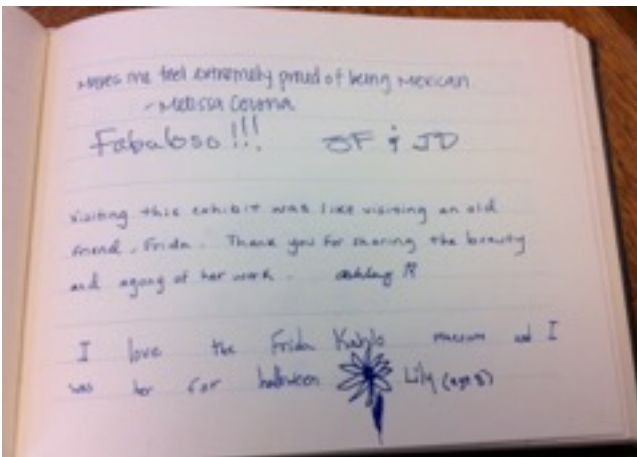 Makes me feel extremely proud of being Mexican
- Melissa Corona
Fabuloso!!! JF & JD
Visiting this exhibit was like visiting an old
friend, Frida. Thank you for sharing the beauty
and agony of her work. Ashley
I love the Frida Kahlo museum and I
was her for halloween Lily (age 8)